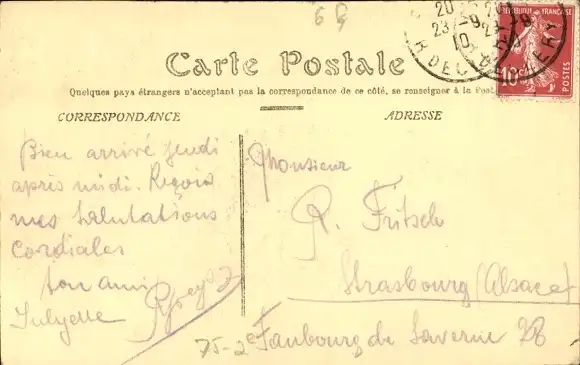 6
Carte Postale
Quelques pays étrangers n'acceptant pas la correspondance de ce côté, se renseigner à la Poste
CORRESPONDANCE
ADRESSE
RÉPUBLIQUE FRANÇAISE
10
POSTES
20
23-9
10
Bien arrivé jeudi
après midi. Reçois
mes salutations
cordiales
ton ami
Monsieur
R. Fritsch
Strasbourg (Alsace)
75-2e
Faubourg de Saverne 28